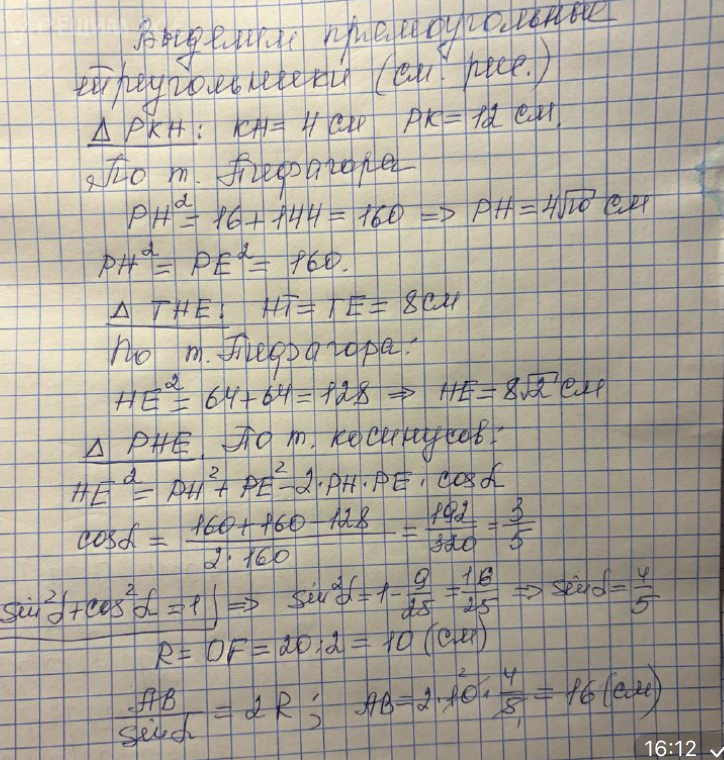 Выделим прямоугольные
треугольники (см. рис.)
Δ PKH: KH = 4 см PK = 12 см.
По т. Пифагора
PH² = 16 + 144 = 160 => PH = 4√10 см
PH² = PE² = 160.
Δ THE: HT = TE = 8 см
По т. Пифагора:
HE² = 64 + 64 = 128 => HE = 8√2 см
Δ PHE. По т. косинусов:
HE² = PH² + PE² - 2·PH·PE·cosα
cosα = (160 + 160 - 128)/(2·160) = 192/320 = 3/5
sin²α + cos²α = 1 => sin²α = 1 - 9/25 = 16/25 => sinα = 4/5
R = OF = 20:2 = 10 (см)
AB/sinα = 2R; AB = 2·10·4/5 = 16 (см)
16:12